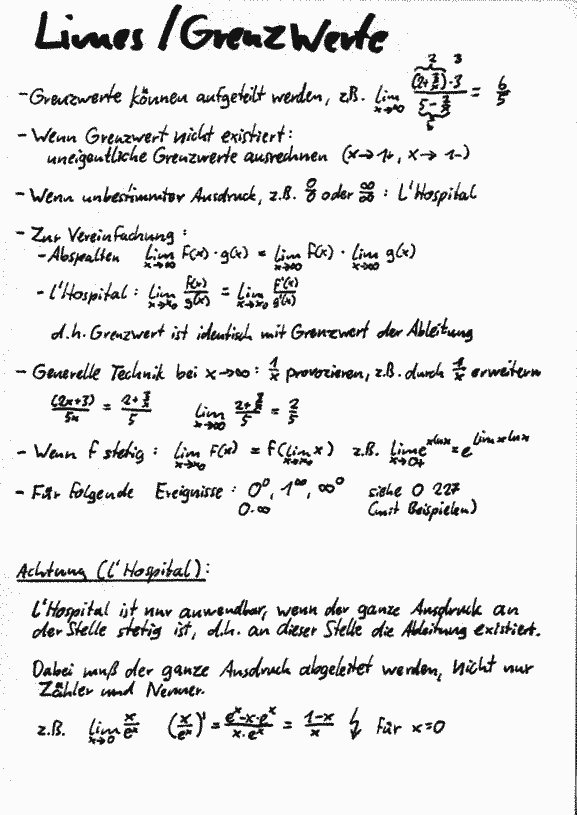 Limes / Grenzwerte
- Grenzwerte können aufgeteilt werden, z.B. lim x→∞ ((2+3/x)·3)/(5-2/x) = 6/5
2 3
5
- Wenn Grenzwert nicht existiert:
uneigentliche Grenzwerte ausrechnen (x→1+, x→1-)
- Wenn unbestimmter Ausdruck, z.B. 0/0 oder ∞/∞ : L'Hospital
- Zur Vereinfachung:
- Abspalten lim x→∞ f(x)·g(x) = lim x→∞ f(x) · lim x→∞ g(x)
- L'Hospital: lim x→x₀ f(x)/g(x) = lim x→x₀ f'(x)/g'(x)
d.h. Grenzwert ist identisch mit Grenzwert der Ableitung
- Generelle Technik bei x→∞: 1/x provozieren, z.B. durch 1/x erweitern
(2x+3)/5x = (2+3/x)/5 lim x→∞ (2+3/x)/5 = 2/5
- Wenn f stetig: lim x→x₀ f(x) = f(lim x→x₀ x) z.B. lim x→0+ e^(x ln x) = e^(lim x ln x)
- Für folgende Ereignisse: 0⁰, 1^∞, ∞⁰ siehe O 227
0·∞ (mit Beispielen)
Achtung (L'Hospital):
L'Hospital ist nur anwendbar, wenn der ganze Ausdruck an
der Stelle stetig ist, d.h. an dieser Stelle die Ableitung existiert.
Dabei muß der ganze Ausdruck abgeleitet werden, nicht nur
Zähler und Nenner.
z.B. lim x→0 x/e^x (x/e^x)' = (e^x-x·e^x)/(x·e^x) = (1-x)/x ↯ für x=0